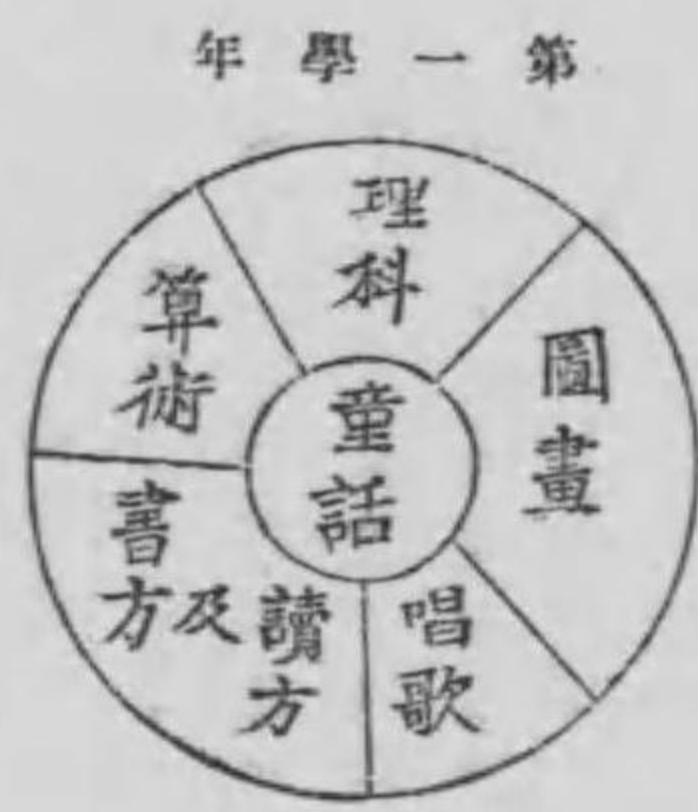 第一學年
理科
圖畫
唱歌
讀方
及
書方
算術
童話